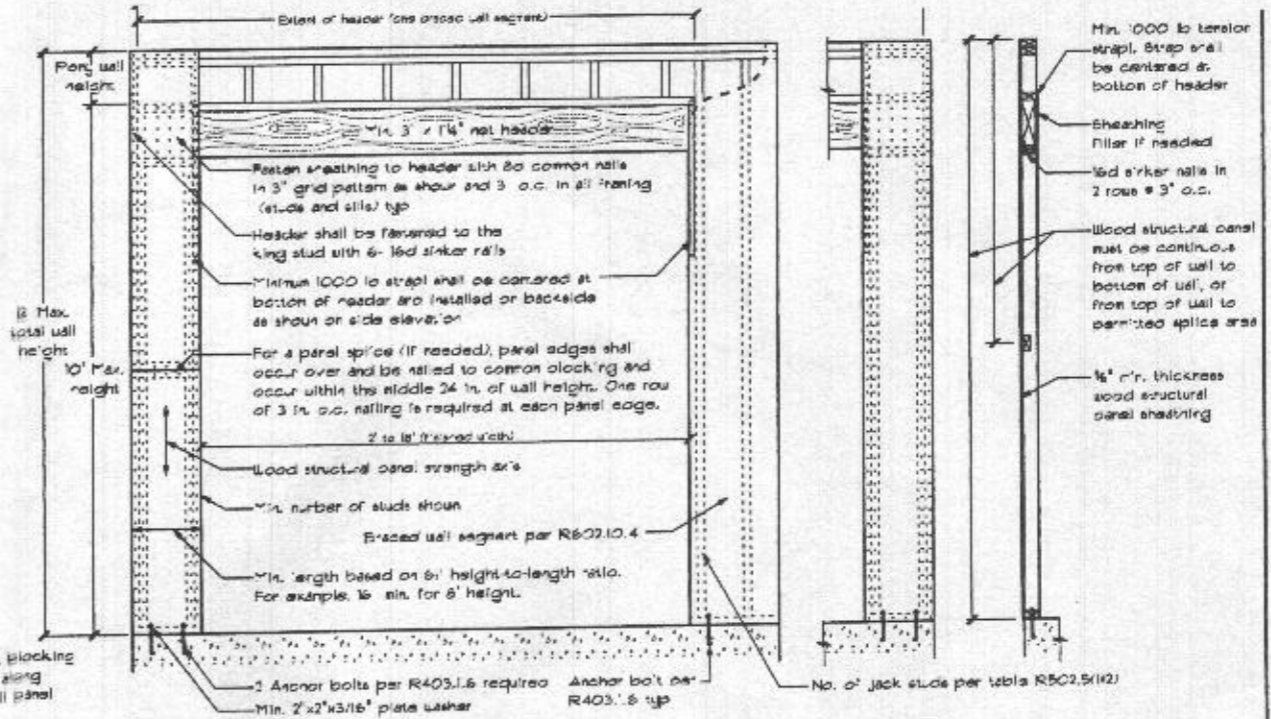 Extent of header (one braced wall segment)
Pony wall
height
Min. 3" x 11¼" net header
Fasten sheathing to header with 8d common nails
in 3" grid pattern as shown and 3" o.c. in all framing
(studs and sills) typ
Header shall be fastened to the
king stud with 6- 16d sinker nails
Minimum 1000 lb strap shall be centered at
bottom of header and installed on backside
as shown on side elevation
12' Max.
total wall
height
10' Max.
height
For a panel splice (if needed), panel edges shall
occur over and be nailed to common blocking and
occur within the middle 24 in. of wall height. One row
of 3 in. o.c. nailing is required at each panel edge.
2' to 18' (finished width)
Wood structural panel strength axis
Min. number of studs shown
Braced wall segment per R602.10.4
Min. length based on 6:1 height-to-length ratio.
For example, 16" min. for 8' height.
blocking
along
panel
2 Anchor bolts per R403.1.6 required
Min. 2"x2"x3/16" plate washer
Anchor bolt per
R403.1.6 typ
No. of jack studs per table R502.5(1&2)
Min. 1000 lb tension
strap. Strap shall
be centered at
bottom of header
Sheathing
filler if needed
16d sinker nails in
2 rows @ 3" o.c.
Wood structural panel
must be continuous
from top of wall to
bottom of wall, or
from top of wall to
permitted splice area
min. thickness
wood structural
panel sheathing